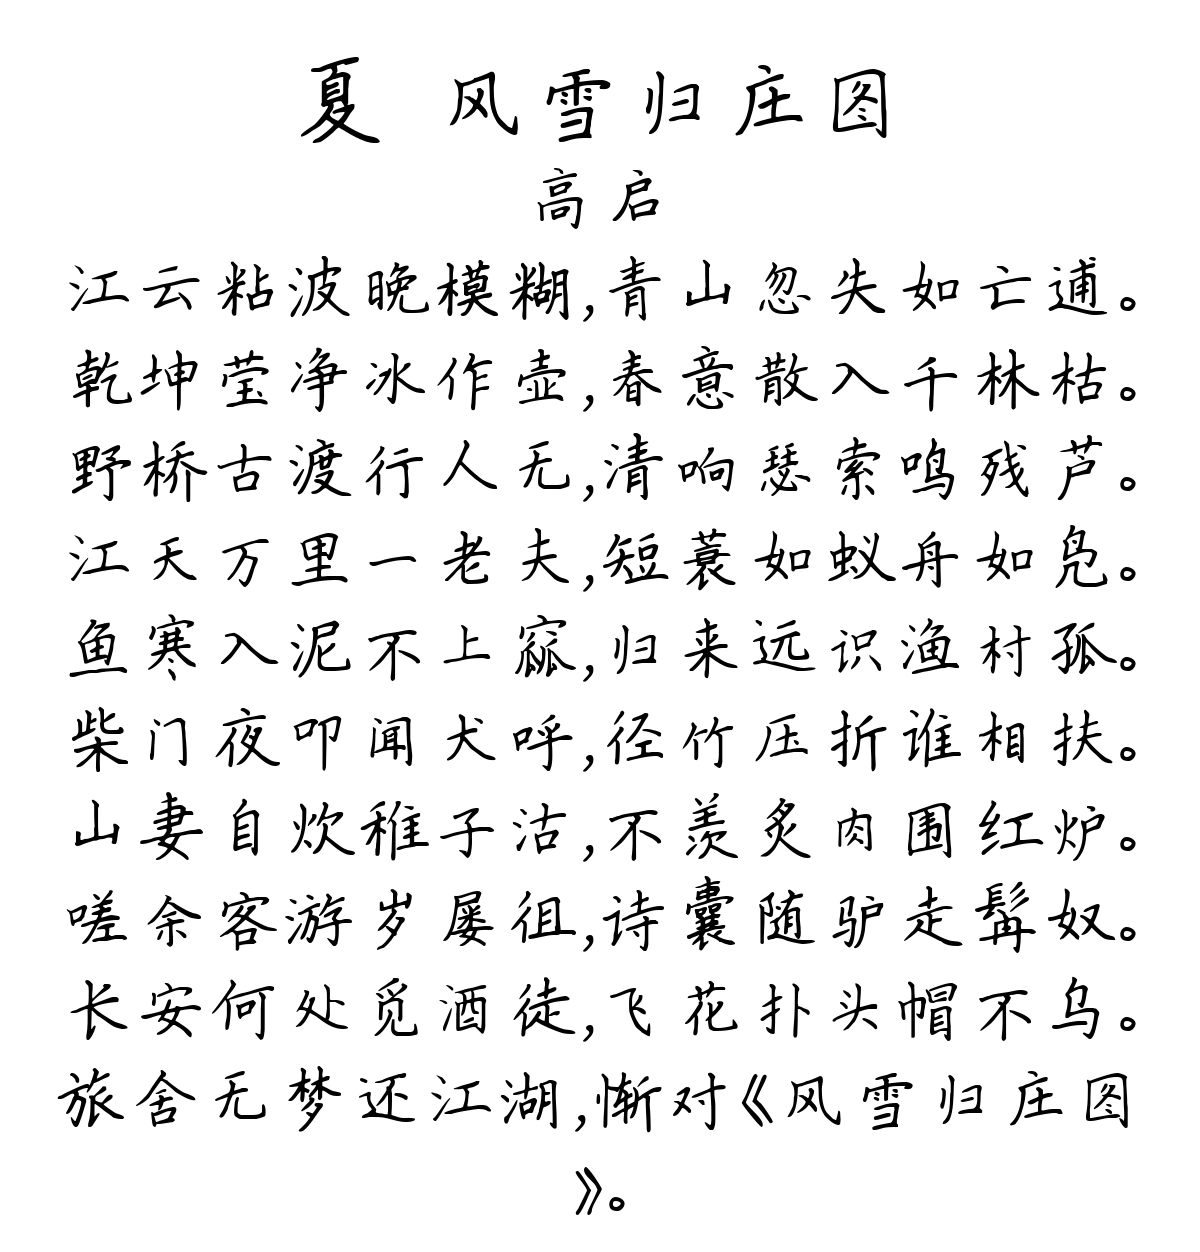 夏 风雪归庄图
高启
江云粘波晚模糊,青山忽失如亡逋。
乾坤莹净冰作壶,春意散入千林枯。
野桥古渡行人无,清响瑟索鸣残芦。
江天万里一老夫,短蓑如蚁舟如凫。
鱼寒入泥不上窳,归来远识渔村孤。
柴门夜叩闻犬呼,径竹压折谁相扶。
山妻自炊稚子沽,不羡炙肉围红炉。
嗟余客游岁屡徂,诗囊随驴走髯奴。
长安何处觅酒徒,飞花扑头帽不乌。
旅舍无梦还江湖,惭对《风雪归庄图
》。